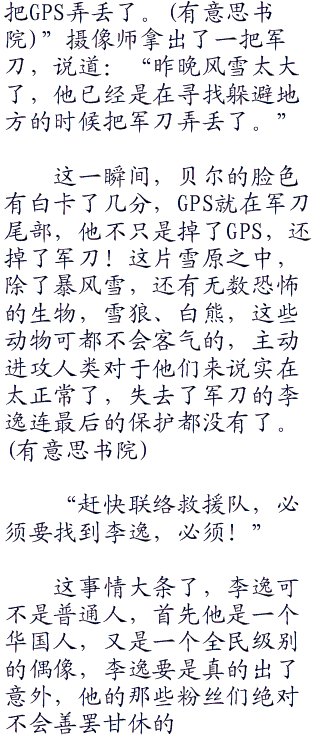 把GPS弄丢了。(有意思书
院)”摄像师拿出了一把军
刀，说道：“昨晚风雪太大
了，他已经是在寻找躲避地
方的时候把军刀弄丢了。”
这一瞬间，贝尔的脸色
有白卡了几分，GPS就在军刀
尾部，他不只是掉了GPS，还
掉了军刀！这片雪原之中，
除了暴风雪，还有无数恐怖
的生物，雪狼、白熊，这些
动物可都不会客气的，主动
进攻人类对于他们来说实在
太正常了，失去了军刀的李
逸连最后的保护都没有了。
(有意思书院)
“赶快联络救援队，必
须要找到李逸，必须！”
这事情大条了，李逸可
不是普通人，首先他是一个
华国人，又是一个全民级别
的偶像，李逸要是真的出了
意外，他的那些粉丝们绝对
不会善罢甘休的